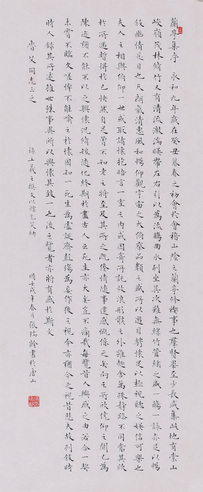 蘭亭集序 永和九年歲在癸丑暮春之初會於會稽山陰之蘭亭修稧事也群賢畢至少長咸集此地有崇山
峻嶺茂林修竹又有清流激湍映帶左右引以爲流觴曲水列坐其次雖無絲竹管絃之盛一觴一詠亦足以暢
敘幽情是日也天朗氣清惠風和暢仰觀宇宙之大俯察品類之盛所以遊目騁懷足以極視聽之娛信可樂也
夫人之相與俯仰一世或取諸懷抱晤言一室之內或因寄所託放浪形骸之外雖趣舍萬殊靜躁不同當其欣
於所遇暫得於己快然自足不知老之將至及其所之既倦情隨事遷感慨係之矣向之所欣俛仰之間已爲
陳迹猶不能不以之興懷況修短隨化終期於盡古人云死生亦大矣豈不痛哉每覽昔人興感之由若合一契
未嘗不臨文嗟悼不能喻之於懷固知一死生爲虛誕齊彭殤爲妄作後之視今亦猶今之視昔悲夫故列敘時
時人錄其所述雖世殊事異所以興懷其致一也後之覽者亦將有感於斯文
父同志正之